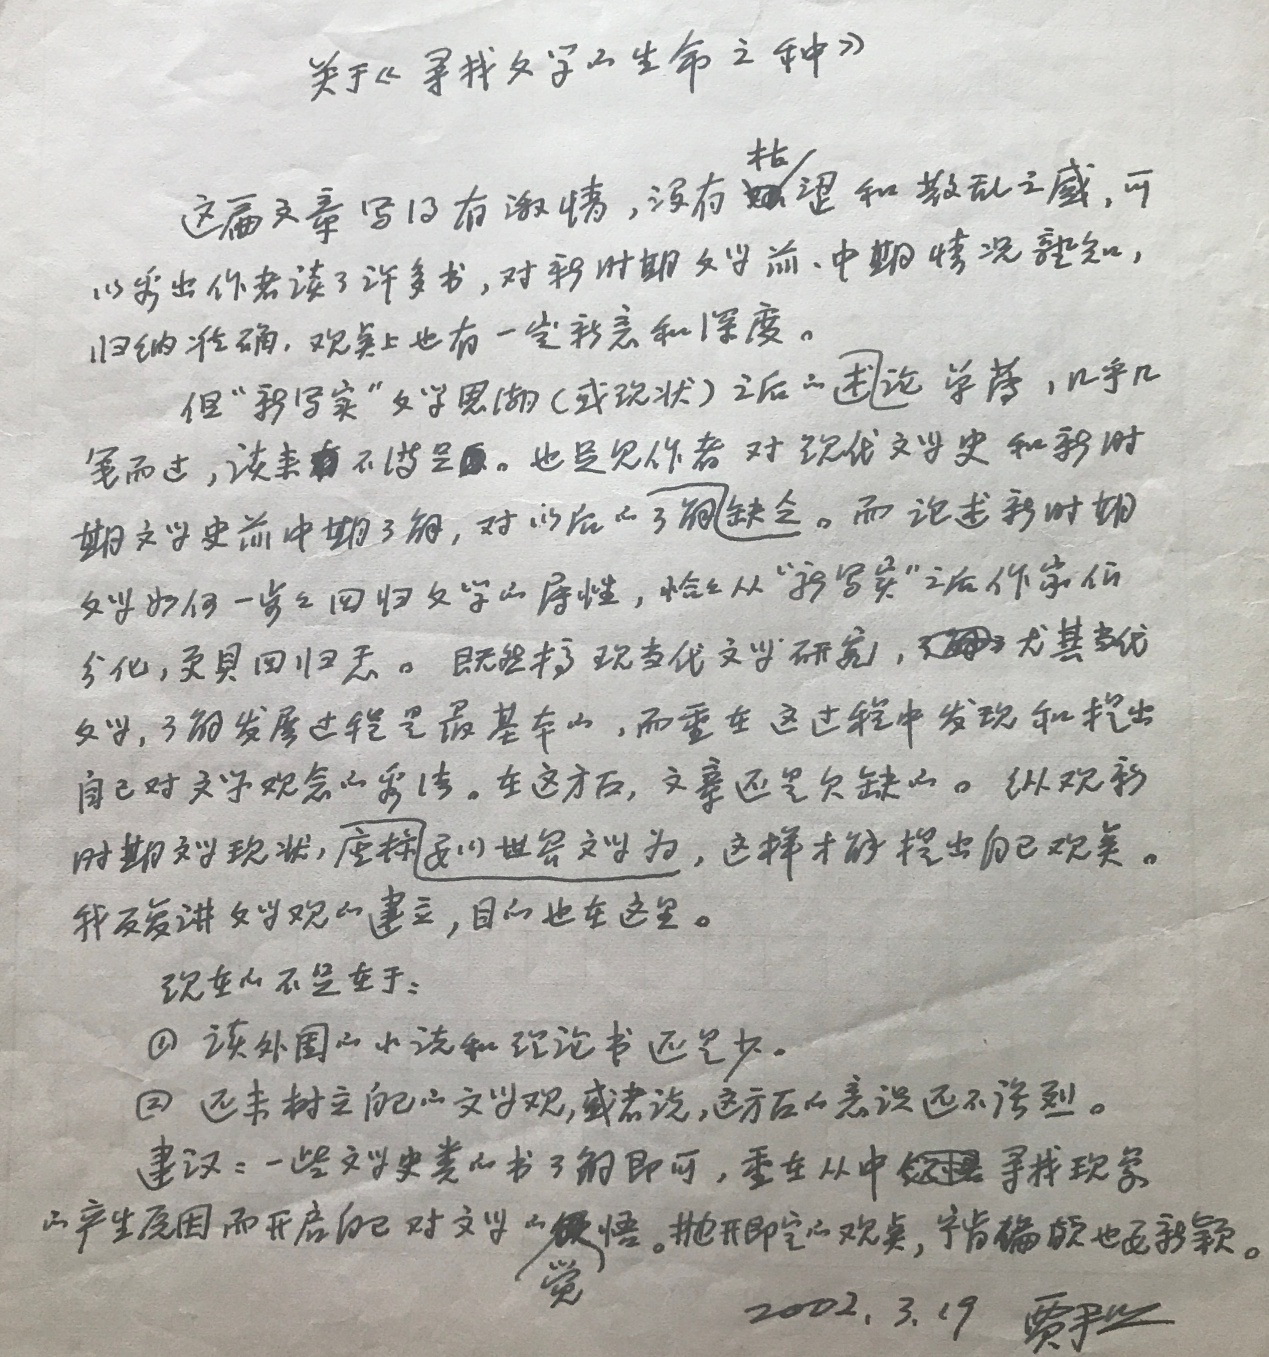 关于《寻找文学的生命之种》
这篇文章写得有激情，没有枯涩和散乱之感，可
以看出作者读了许多书，对新时期文学前、中期情况熟知，
归纳准确，观点上也有一定新意和深度。
但“新写实”文学思潮（或现状）之后的论述单薄，几乎几
笔而过，读来不满足。也足见作者对现代文学史和新时
期文学史前中期了解，对以后的缺乏了解。而论述新时期
文学如何一步步回归文学的属性，恰恰从“新写实”之后作家们
分化，更具回归志。既然搞现当代文学研究，尤其当代
文学，了解发展过程是最基本的，而重在这过程中发现和提出
自己对文学观念的看法。在这方面，文章还是欠缺的。纵观新
时期文学现状，要以世界文学为座标，这样才能提出自己观点。
我反复讲文学观的建立，目的也在这里。
现在的不足在于：
① 读外国的小说和理论书还是少。
② 还未树立自己的文学观，或者说，这方面的意识还不强烈。
建议：一些文学史类的书了解即可，重在从中寻找现象
的产生原因而开启自己对文学的觉悟。抛开即定的观点，宁肯偏颇也要新颖。
2002.3.19